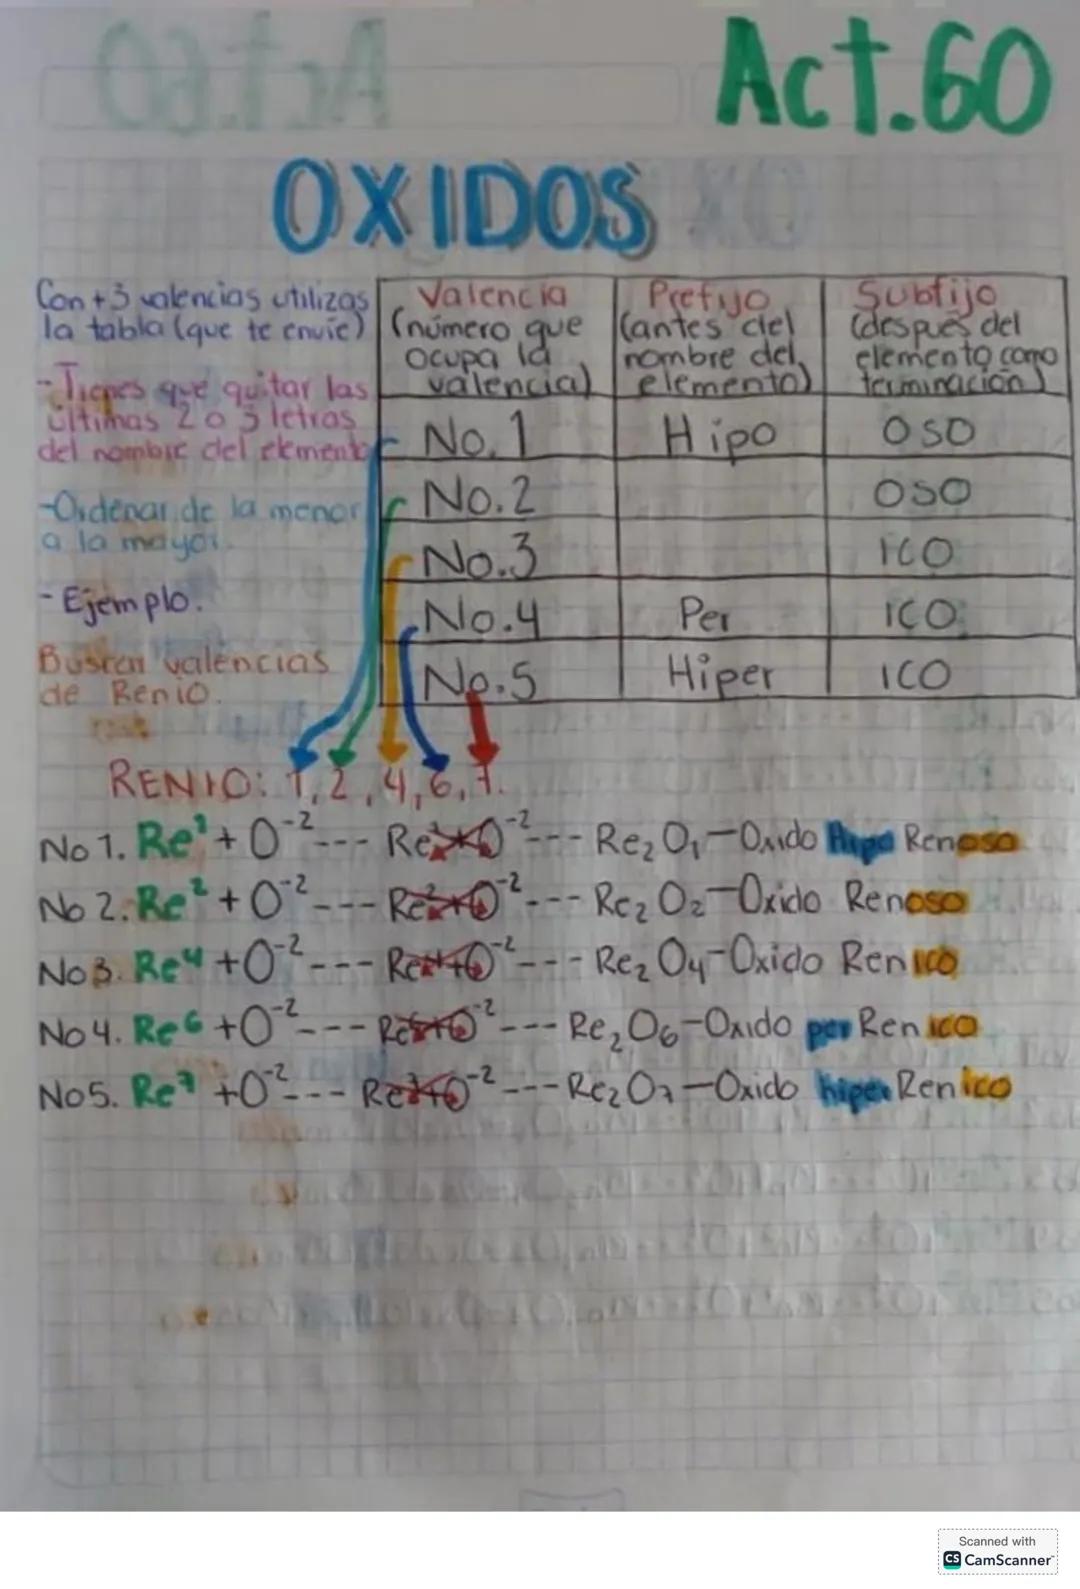 Act.60
OXIDOS
Con +3 valencias utilizas
la tabla (que te envie)
-Tienes que quitar las
últimas 2 o 3 letras
del nombre del elemento
-Ordenar de la menor
a la mayor.
- Ejemplo:
Buscar valencias
de Renio.
Valencia
(número que
ocupa la
valencia)
Prefijo
(antes del
nombre del
elemento)
Subfijo
(después del
elemento como
terminación)
No. 1 Hipo OSO
No.2 OSO
No.3 ICO
No.4 Per ICO
No.5 Hiper ICO
RENIO: 1, 2, 4, 6, 7.
No 1. Re¹ + O⁻²--- Re¹+O⁻²--- Re₂O₁-Oxido Hipo Renoso
No 2. Re² + O⁻²--- Re²+O⁻²--- Re₂O₂-Oxido Renoso
No3. Re⁴ + O⁻²--- Re⁴+O⁻²--- Re₂O₄-Oxido Renico
No 4. Re⁶ + O⁻²--- Re⁶+O⁻²--- Re₂O₆-Oxido per Renico
No5. Re⁷ + O⁻²--- Re⁷+O⁻²--- Re₂O₇-Oxido hiper Renico
Scanned with
CS CamScanner